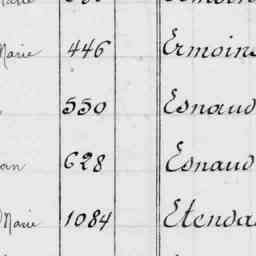 Marie 446 Ermoins
550 Esnaud
628 Esnaud
Marie 1084 Etenda